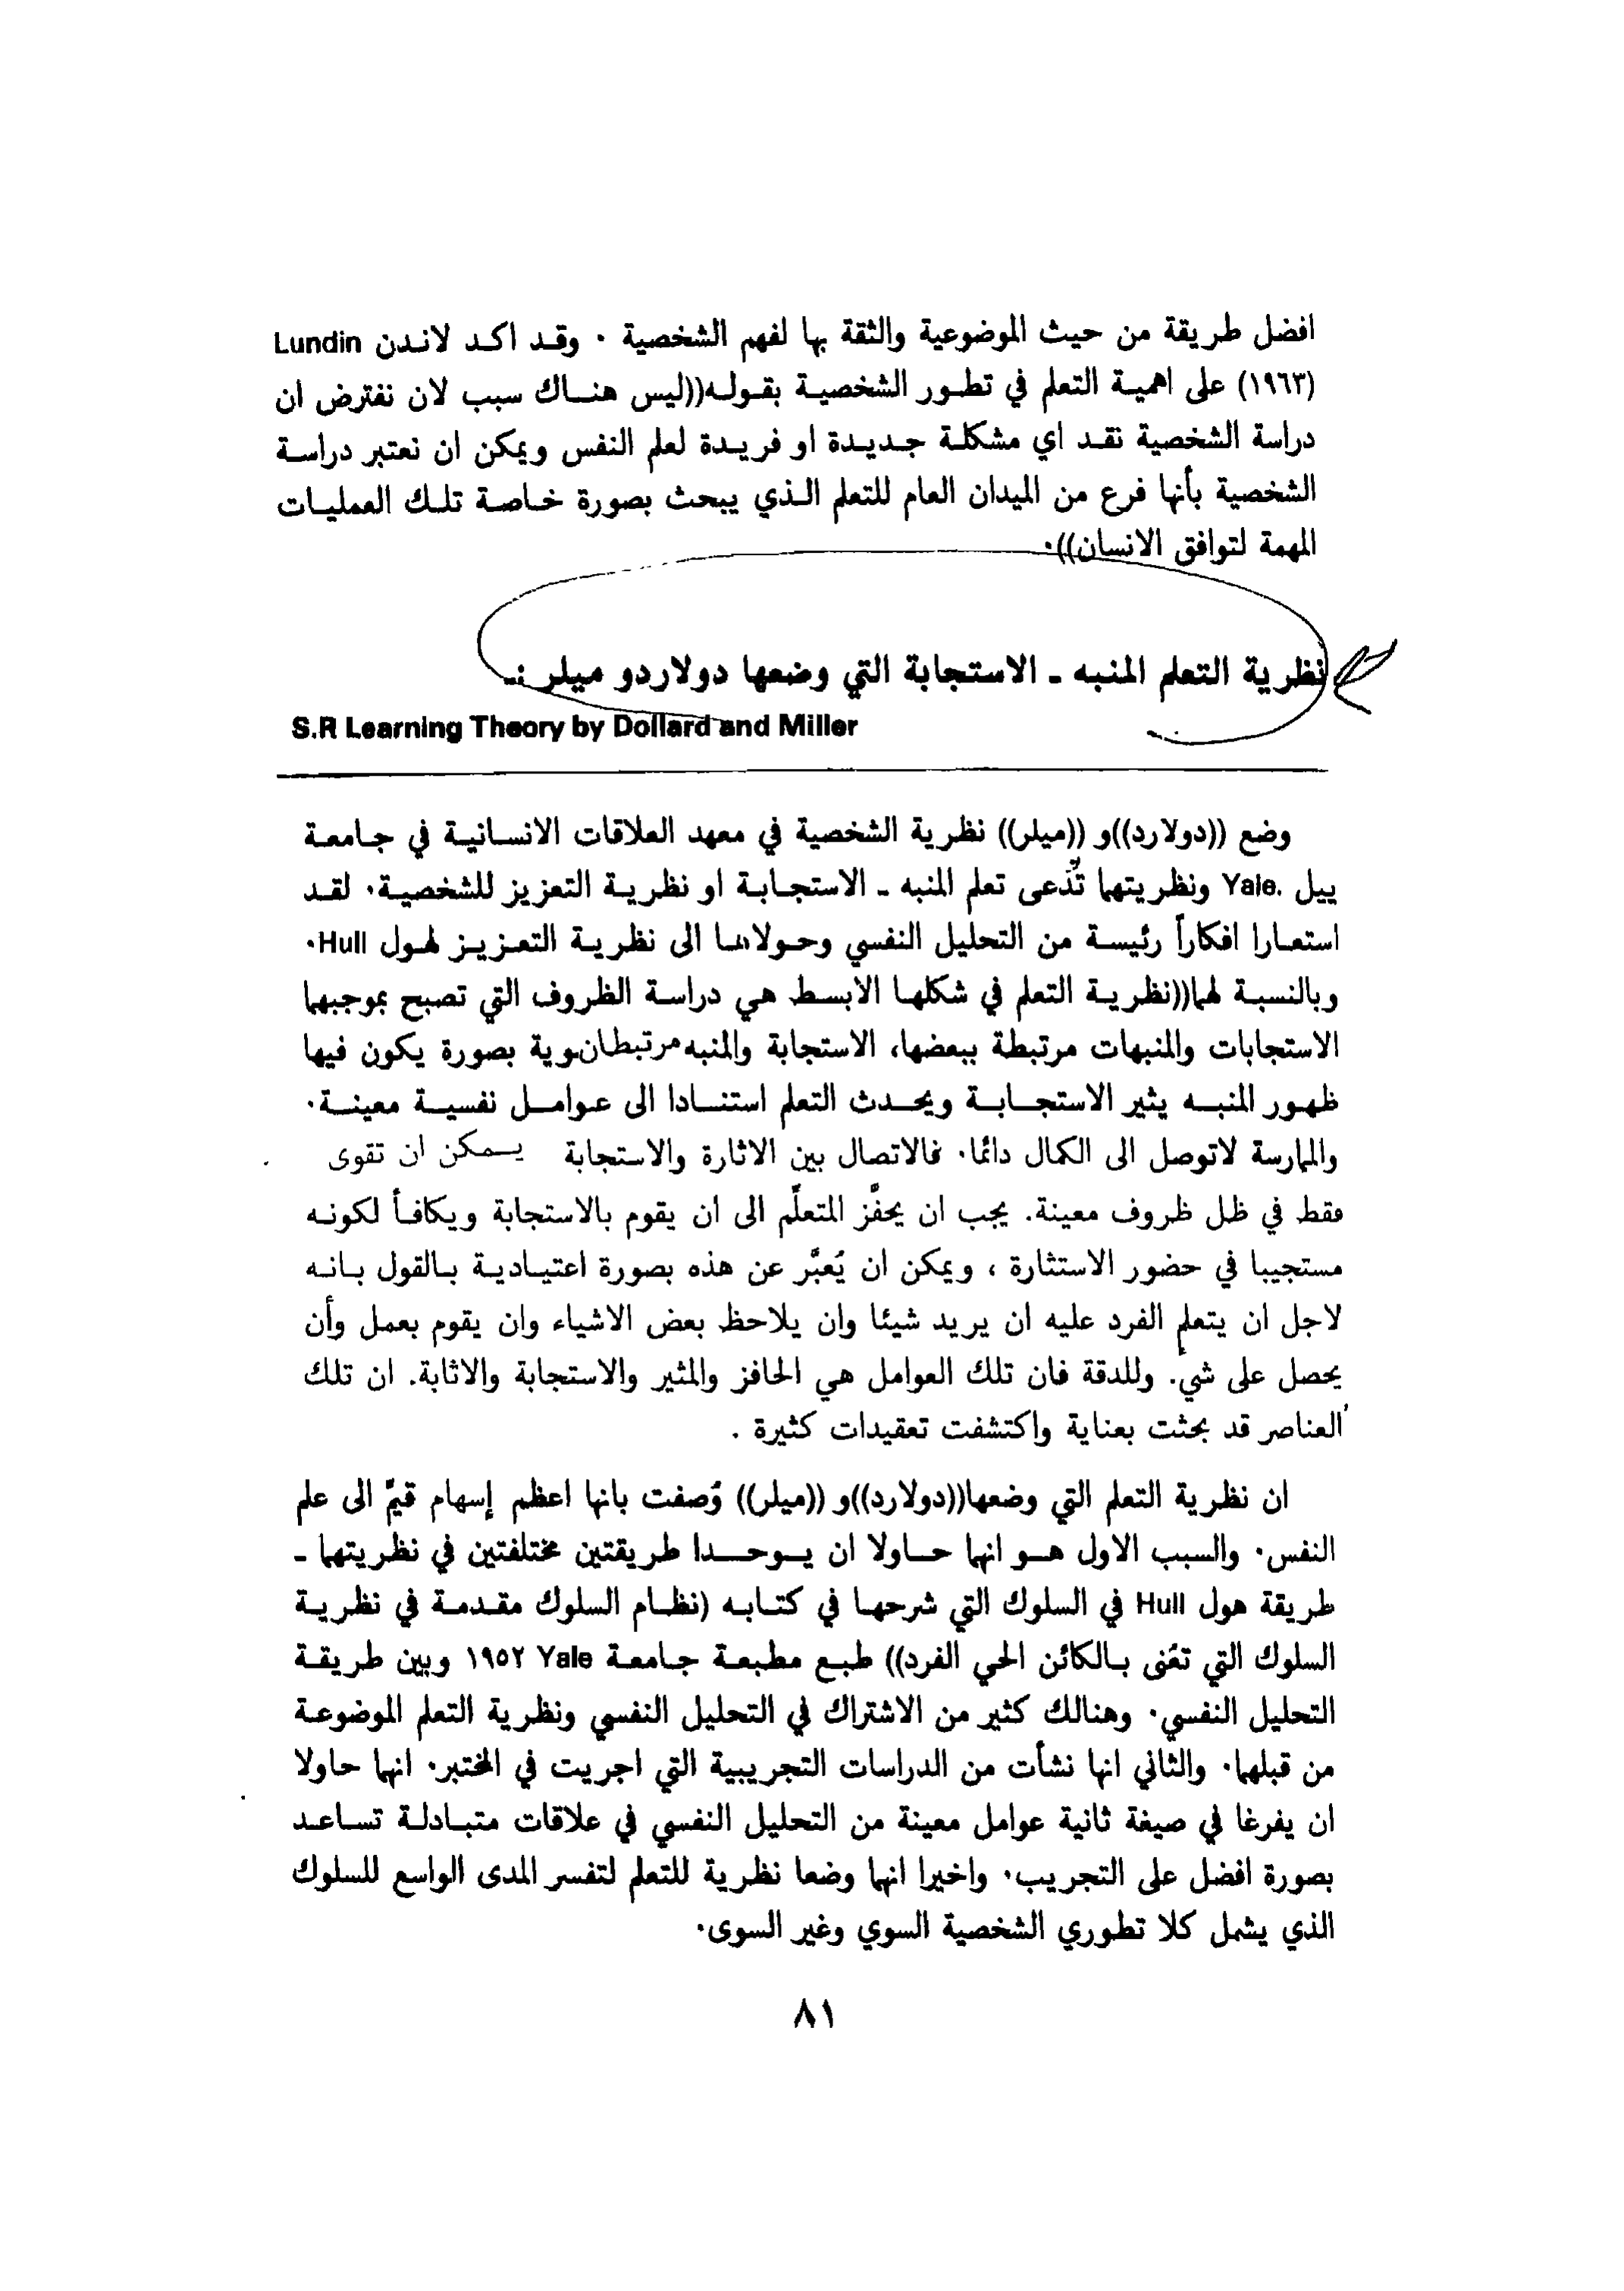 افضل طريقة من حيث الموضوعية والثقة بها لفهم الشخصية ٠ وقد اكد لاندن Lundin
(١٩٦٣) على اهمية التعلم في تطور الشخصية بقوله((ليس هناك سبب لان نفترض ان
دراسة الشخصية نقد اي مشكلة جديدة او فريدة لعلم النفس ويمكن ان نعتبر دراسة
الشخصية بأنها فرع من الميدان العام للتعلم الذي يبحث بصورة خاصة تلك العمليات
المهمة لتوافق الانسان))٠
نظرية التعلم المنبه ـ الاستجابة التي وضعها دولاردو ميلر :ـ
S.R Learning Theory by Dollard and Miller
وضع ((دولارد))و ((ميلر)) نظرية الشخصية في معهد العلاقات الانسانية في جامعة
ييل .Yale ونظريتهما تُدعى تعلم المنبه ـ الاستجابة او نظرية التعزيز للشخصية٠ لقد
استعارا افكاراً رئيسة من التحليل النفسي وحولاهما الى نظرية التعزيز لهول Hull٠
وبالنسبة لهما((نظرية التعلم في شكلها الابسط هي دراسة الظروف التي تصبح بموجبها
الاستجابات والمنبهات مرتبطة ببعضها، الاستجابة والمنبه مرتبطان سوية بصورة يكون فيها
ظهور المنبه يثير الاستجابة ويحدث التعلم استنادا الى عوامل نفسية معينة٠
والمارسة لاتوصل الى الكمال دائما٠ فالاتصال بين الاثارة والاستجابة يمكن ان تقوى
فقط في ظل ظروف معينة. يجب ان يحفَّز المتعلِّم الى ان يقوم بالاستجابة ويكافأ لكونه
مستجيبا في حضور الاستثارة ، ويمكن ان يُعبَّر عن هذه بصورة اعتيادية بالقول بانه
لاجل ان يتعلم الفرد عليه ان يريد شيئا وان يلاحظ بعض الاشياء وان يقوم بعمل وأن
يحصل على شيء. وللدقة فان تلك العوامل هي الحافز والمثير والاستجابة والاثابة. ان تلك
العناصر قد بحثت بعناية واكتشفت تعقيدات كثيرة .
ان نظرية التعلم التي وضعها((دولارد))و ((ميلر)) وُصفت بانها اعظم إسهام قيِّم الى علم
النفس٠ والسبب الاول هو انهما حاولا ان يوحدا طريقتين مختلفتين في نظريتهما ـ
طريقة هول Hull في السلوك التي شرحها في كتابه (نظام السلوك مقدمة في نظرية
السلوك التي تعُنى بالكائن الحي الفرد)) طبع مطبعة جامعة Yale ١٩٥٢ وبين طريقة
التحليل النفسي٠ وهنالك كثير من الاشتراك في التحليل النفسي ونظرية التعلم الموضوعة
من قبلهما٠ والثاني انها نشأت من الدراسات التجريبية التي اجريت في المختبر٠ انهما حاولا
ان يفرغا في صيغة ثانية عوامل معينة من التحليل النفسي في علاقات متبادلة تساعد
بصورة افضل على التجريب٠ واخيرا انهما وضعا نظرية للتعلم لتفسر المدى الواسع للسلوك
الذي يشمل كلا تطوري الشخصية السوي وغير السوى٠
٨١